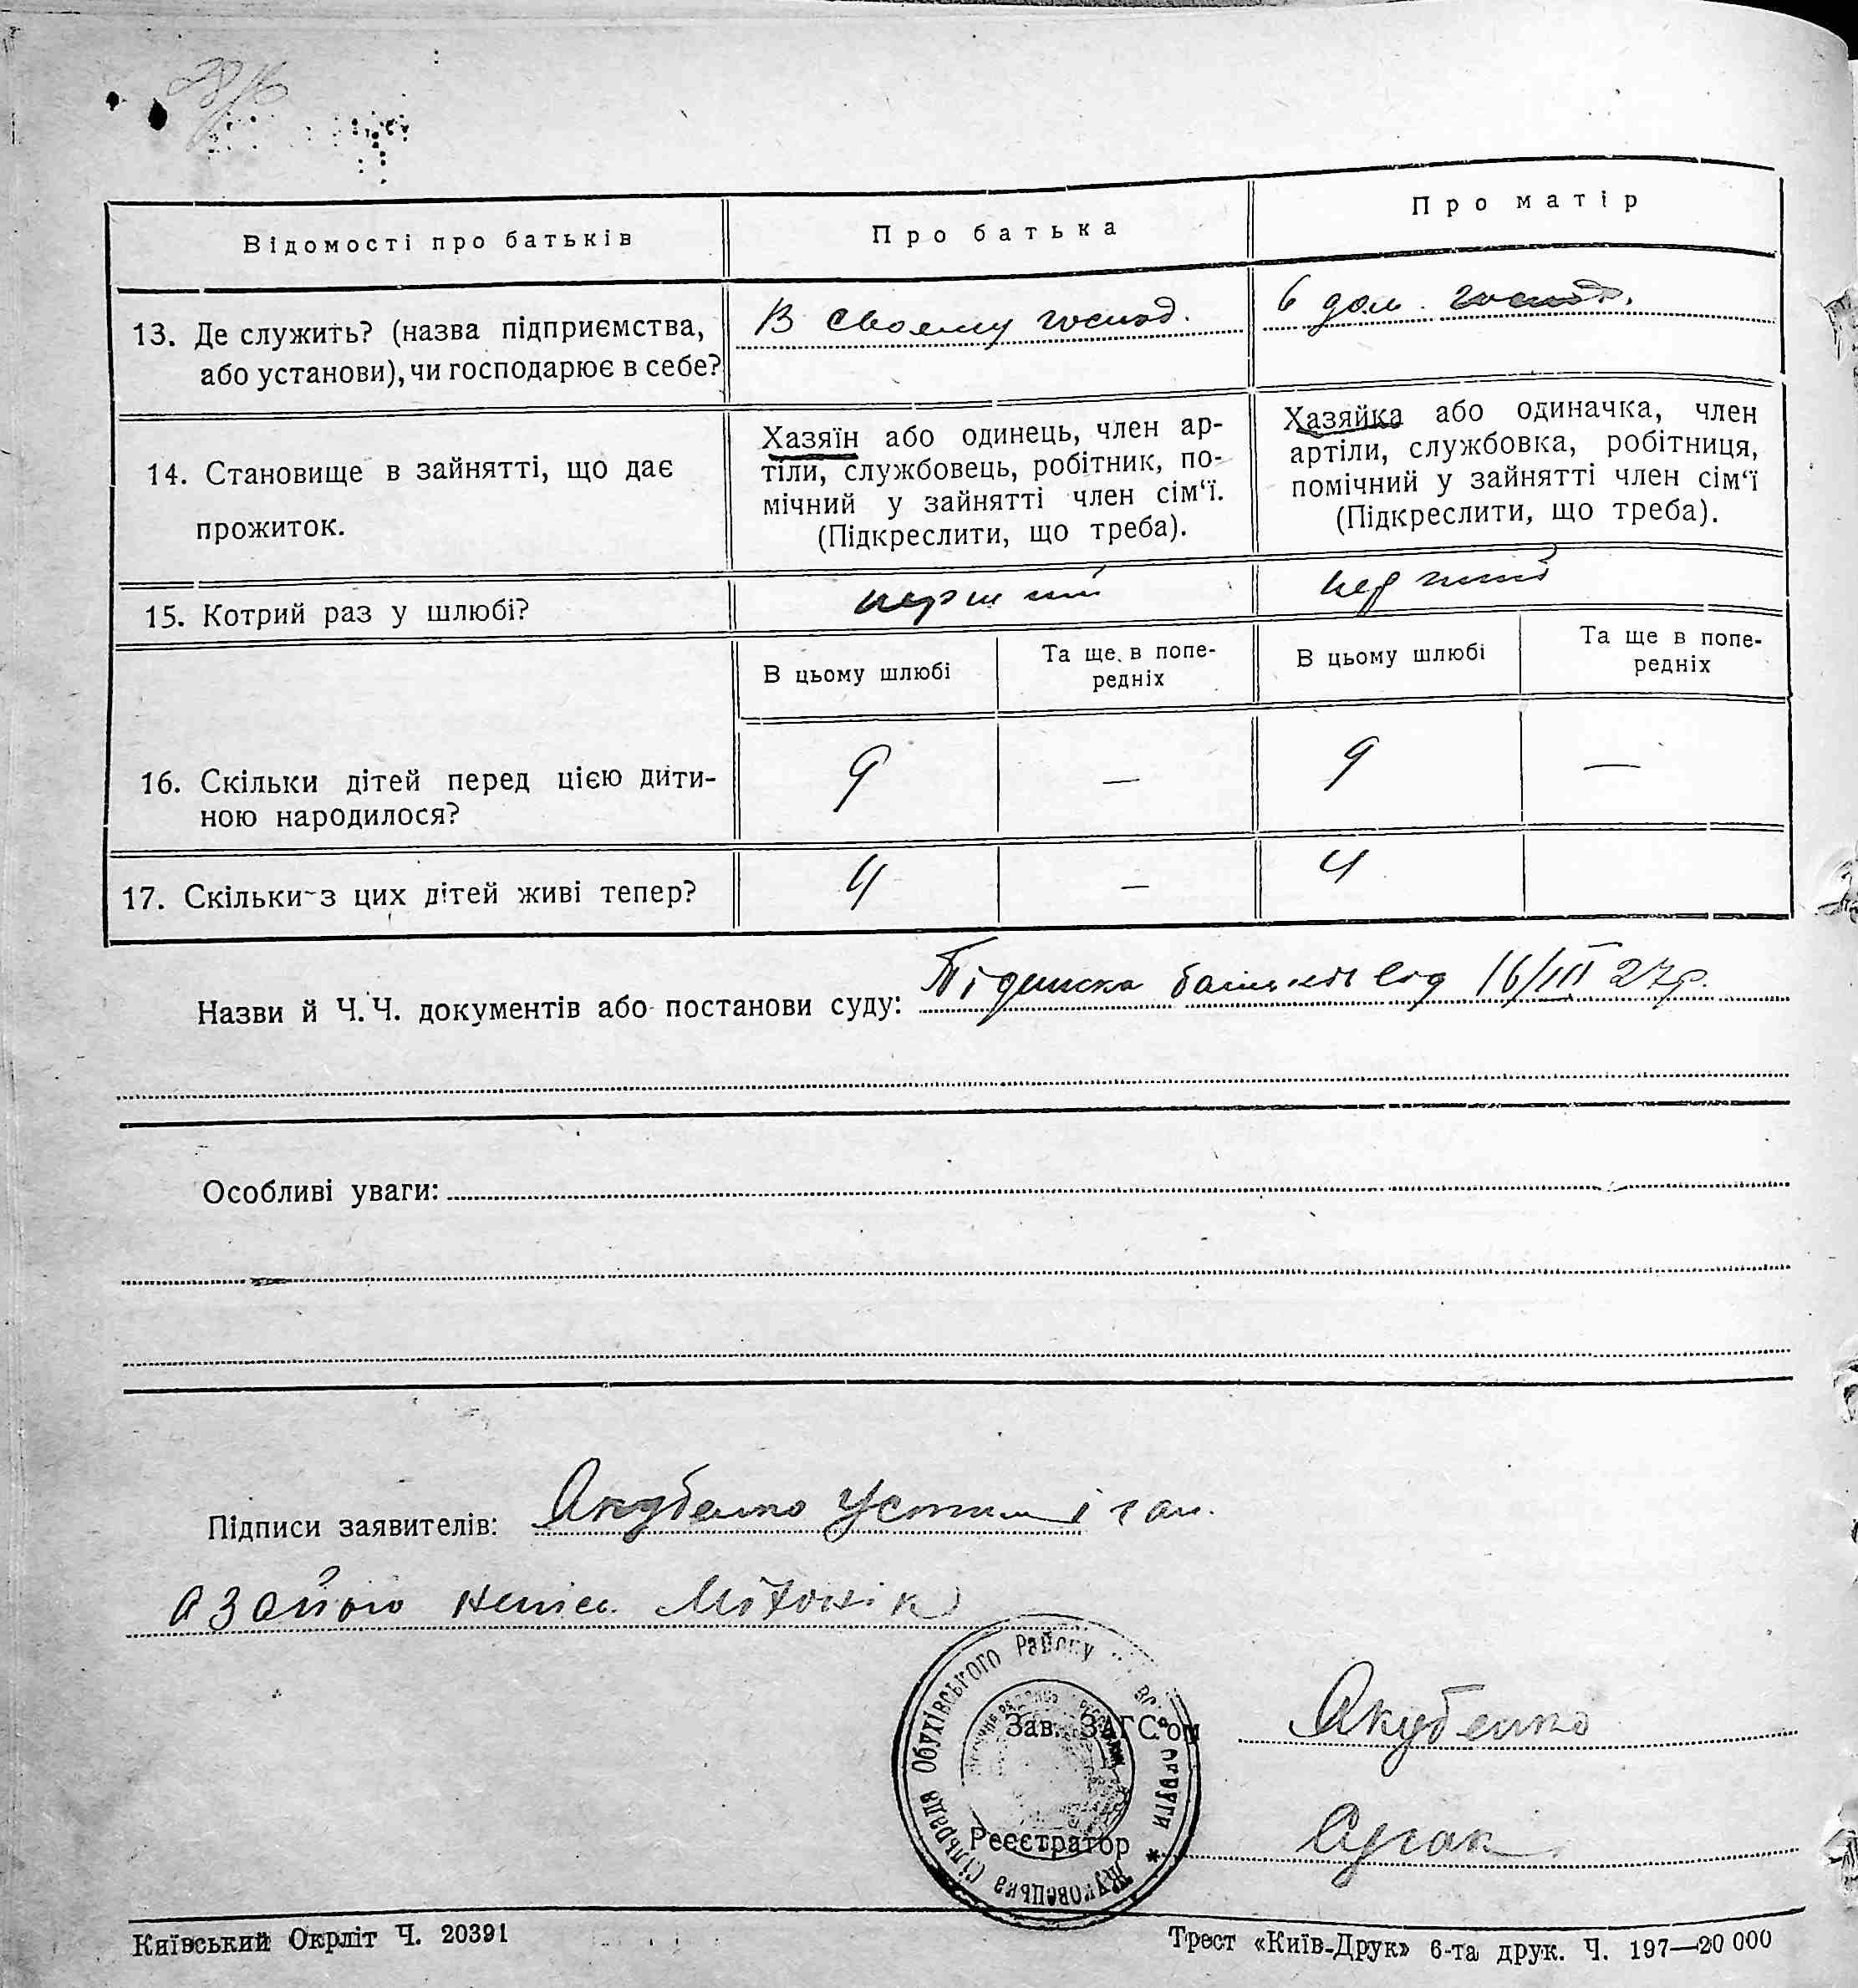 28/16
Відомості про батьків
Про батька
Про матір
13. Де служить? (назва підприємства,
або установи), чи господарює в себе?
В своєму господ.
в дом. господ.
14. Становище в зайнятті, що дає
прожиток.
Хазяїн або одинець, член ар-
тіли, службовець, робітник, по-
мічний у зайнятті член сім‘ї.
(Підкреслити, що треба).
Хазяйка або одиначка, член
артіли, службовка, робітниця,
помічний у зайнятті член сім‘ї
(Підкреслити, що треба).
15. Котрий раз у шлюбі?
перший
перший
В цьому шлюбі
Та ще в попе-
редніх
В цьому шлюбі
Та ще в попе-
редніх
16. Скільки дітей перед цією дити-
ною народилося?
9
—
9
—
17. Скільки з цих дітей живі тепер?
4
—
4
Назви й Ч.Ч. документів або постанови суду: Підписка батьків від 16/III 27р.
Особливі уваги:
Підписи заявителів: Якубенко Устим
а за його непись.
Обухівського Району
округи * Жуковецька Сільрада
Зав. ЗАГС'ом Якубенко
Реєстратор
Київський Окрліт Ч. 20391
Трест «Київ-Друк» 6-та друк. Ч. 197—20 000